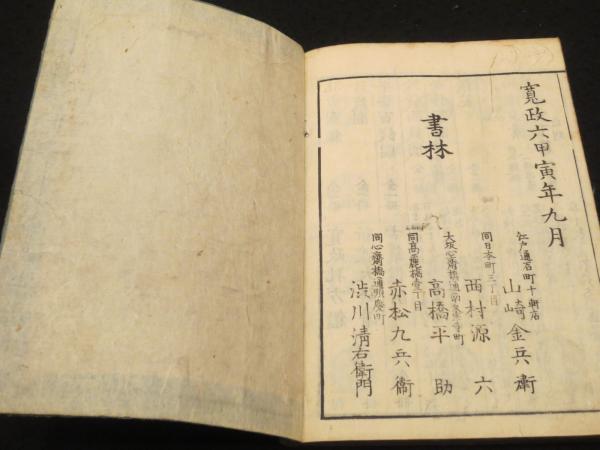 寛政六甲寅年九月
書林
江戸通石町十軒店
山崎金兵衛
同日本町三丁目
西村源六
大坂心齋橋通
町
高橋平助
同高麗橋壹丁目
赤松九兵衛
同心齋橋通順慶町
渋川清右衛門